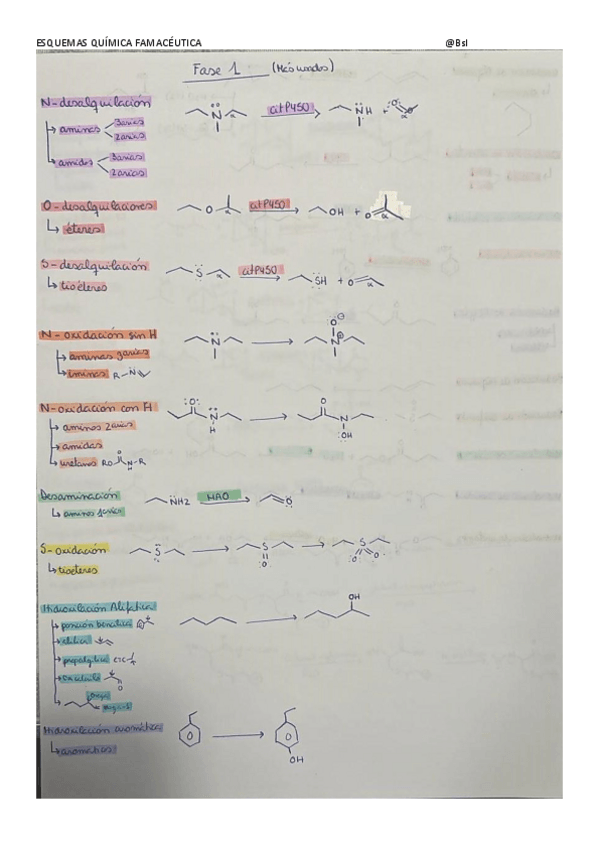 ESQUEMAS QUÍMICA FAMACÉUTICA @BsI
Fase 1 (Más usados)
N-desalquilación
aminas 3arias
2arias
amidas 3arias
2arias
N α citP450 NH + O α
O-desalquilaciones
éteres
O α citP450 OH + O α
S-desalquilación
tioéteres
S α citP450 SH + O α
N-oxidación sin H
aminas 3arias
iminas R-N
N O N
N-oxidación con H
aminas 2arias
amidas
uretano RO O N-R H
O N H O N OH
Desaminación
aminas 1arias
NH2 MAO O
S-oxidación
tioéteres
S S O S O O
Hidroxilación Alifática
posición bencílica
alílica
propargílica C≡C
α carbonilo O
OH
Hidroxilación aromática
aromáticos
OH